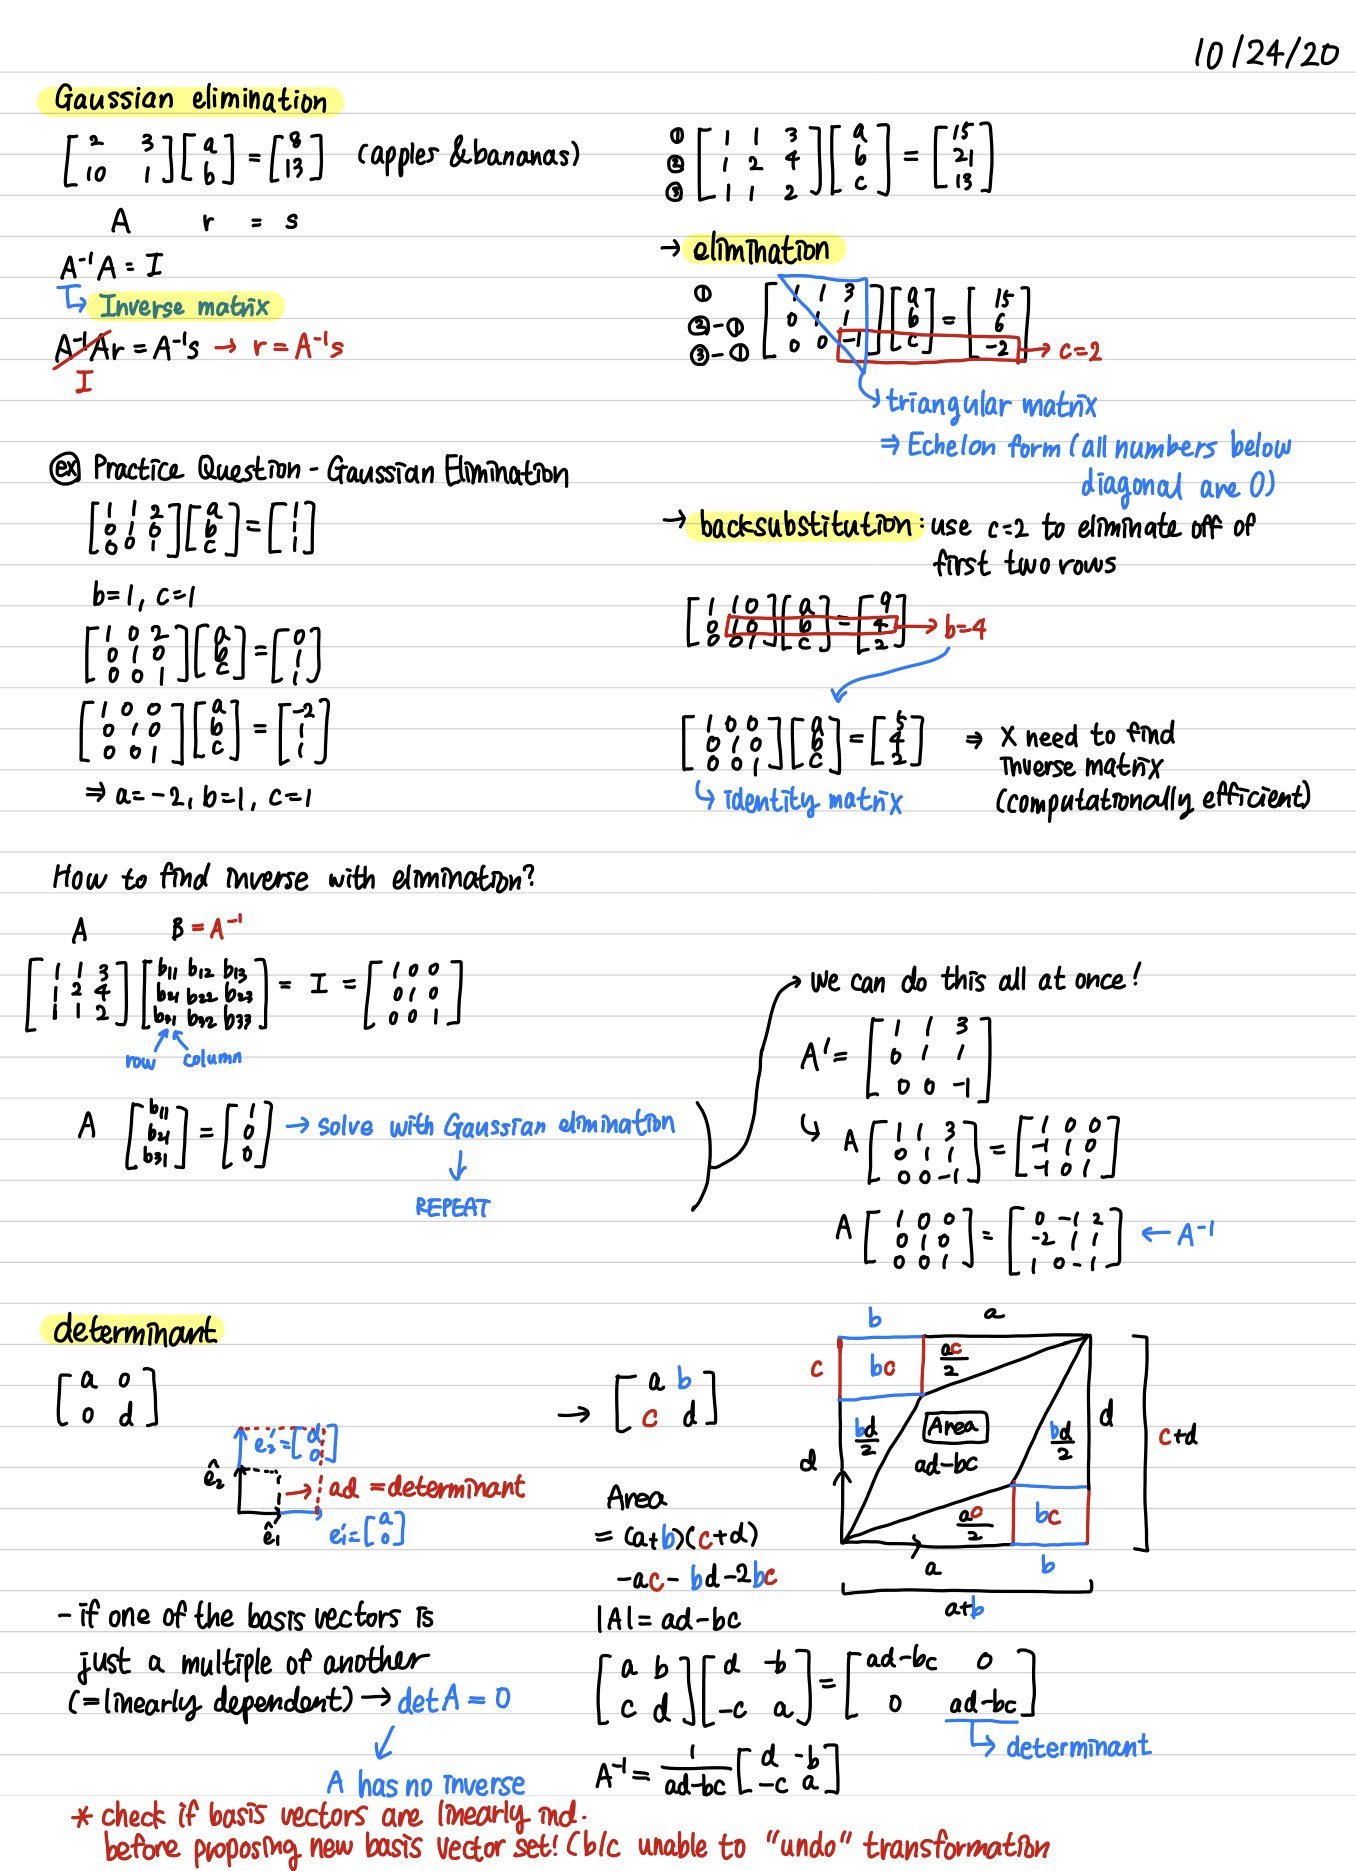 10/24/20
Gaussian elimination
[2 3; 10 1] [a; b] = [8; 13] (apples & bananas)
A r = s
A⁻¹A = I
↳ Inverse matrix
A⁻¹Ar = A⁻¹s → r = A⁻¹s
I
① ② ③ [1 1 3; 1 2 4; 1 1 2] [a; b; c] = [15; 21; 13]
→ elimination
① ②-① ③-① [1 1 3; 0 1 1; 0 0 -1] [a; b; c] = [15; 6; -2] → c=2
↳ triangular matrix
⇒ Echelon form (all numbers below
diagonal are 0)
→ backsubstitution: use c=2 to eliminate off of
first two rows
[1 1 0; 0 1 0; 0 0 1] [a; b; c] = [9; 4; 2] → b=4
[1 0 0; 0 1 0; 0 0 1] [a; b; c] = [5; 4; 2] ⇒ X need to find
inverse matrix
(computationally efficient)
↳ identity matrix
ex Practice Question - Gaussian Elimination
[1 1 2; 0 1 0; 0 0 1] [a; b; c] = [1; 1; 1]
b=1, c=1
[1 0 2; 0 1 0; 0 0 1] [a; b; c] = [0; 1; 1]
[1 0 0; 0 1 0; 0 0 1] [a; b; c] = [-2; 1; 1]
⇒ a=-2, b=1, c=1
How to find inverse with elimination?
A B = A⁻¹
[1 1 3; 1 2 4; 1 1 2] [b11 b12 b13; b21 b22 b23; b31 b32 b33] = I = [1 0 0; 0 1 0; 0 0 1]
row column
A [b11; b21; b31] = [1; 0; 0] → solve with Gaussian elimination
↓
REPEAT
→ we can do this all at once!
A' = [1 1 3; 0 1 1; 0 0 -1]
↳ A [1 1 3; 0 1 1; 0 0 -1] = [1 0 0; -1 1 0; -1 0 1]
A [1 0 0; 0 1 0; 0 0 1] = [0 -1 2; -2 1 1; 1 0 -1] ← A⁻¹
determinant
[a 0; 0 d]
e2' = [d; 0]
ê2
→ ad = determinant
ê1 e1' = [a; 0]
→ [a b; c d]
Area
= (a+b)(c+d)
-ac-bd-2bc
|A| = ad-bc
b a
c bc ac/2
bd/2 Area bd/2 d c+d
d ad-bc
ac/2 bc
a b
a+b
- if one of the basis vectors is
just a multiple of another
(=linearly dependent) → det A = 0
A has no inverse
[a b; c d] [d -b; -c a] = [ad-bc 0; 0 ad-bc]
↳ determinant
A⁻¹ = 1/(ad-bc) [d -b; -c a]
* check if basis vectors are linearly ind.
before proposing new basis vector set! (b/c unable to "undo" transformation